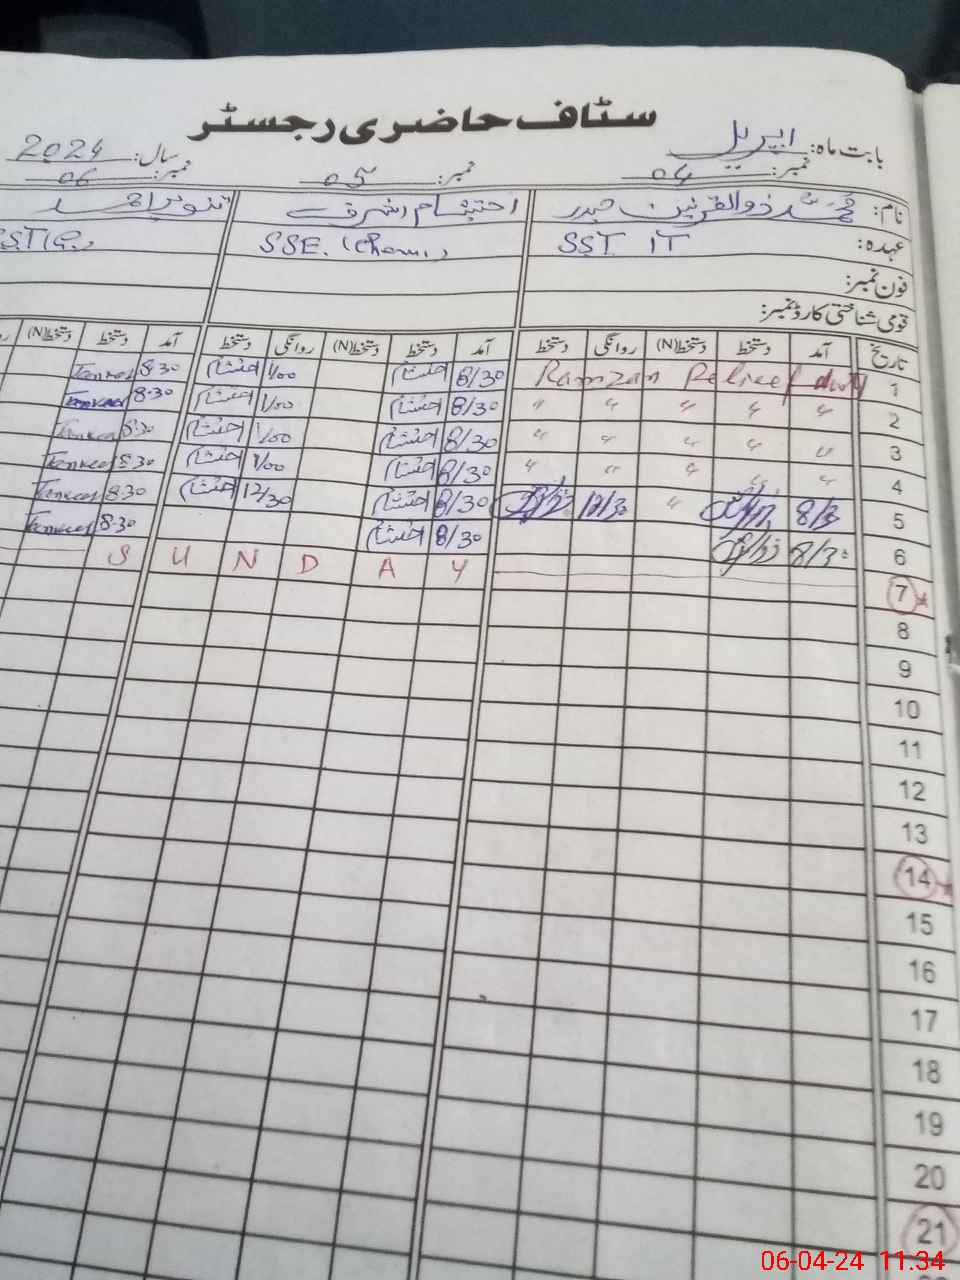 سٹاف حاضری رجسٹر
بابت ماہ: اپریل سال: 2024
نمبر: 04 نمبر: 05 نمبر: 06
نام: محمد ذوالقرنین حیدر احتشام اشرف تنویر احمد
عہدہ: SST IT SSE (Chem)
فون نمبر:
قومی شناختی کارڈ نمبر:
تاریخ آمد دستخط دستخط(N) روانگی دستخط آمد دستخط دستخط(N) روانگی دستخط آمد دستخط دستخط(N)
1 Ramzan Relief duty 8/30 احتشام 1/00 احتشام 8.30 Tanveer
2 " " " " " 8/30 احتشام 1/00 احتشام 8.30 Tanveer
3 " " " " " 8/30 احتشام 1/00 احتشام 8.30 Tanveer
4 " " " " " 8/30 احتشام 1/00 احتشام 8.30 Tanveer
5 8/30 " 12/30 8/30 احتشام 12/30 احتشام 8.30 Tanveer
6 8/30 8/30 احتشام 8.30 Tanveer
7 SUNDAY
8
9
10
11
12
13
14
15
16
17
18
19
20
21
06-04-24 11:34